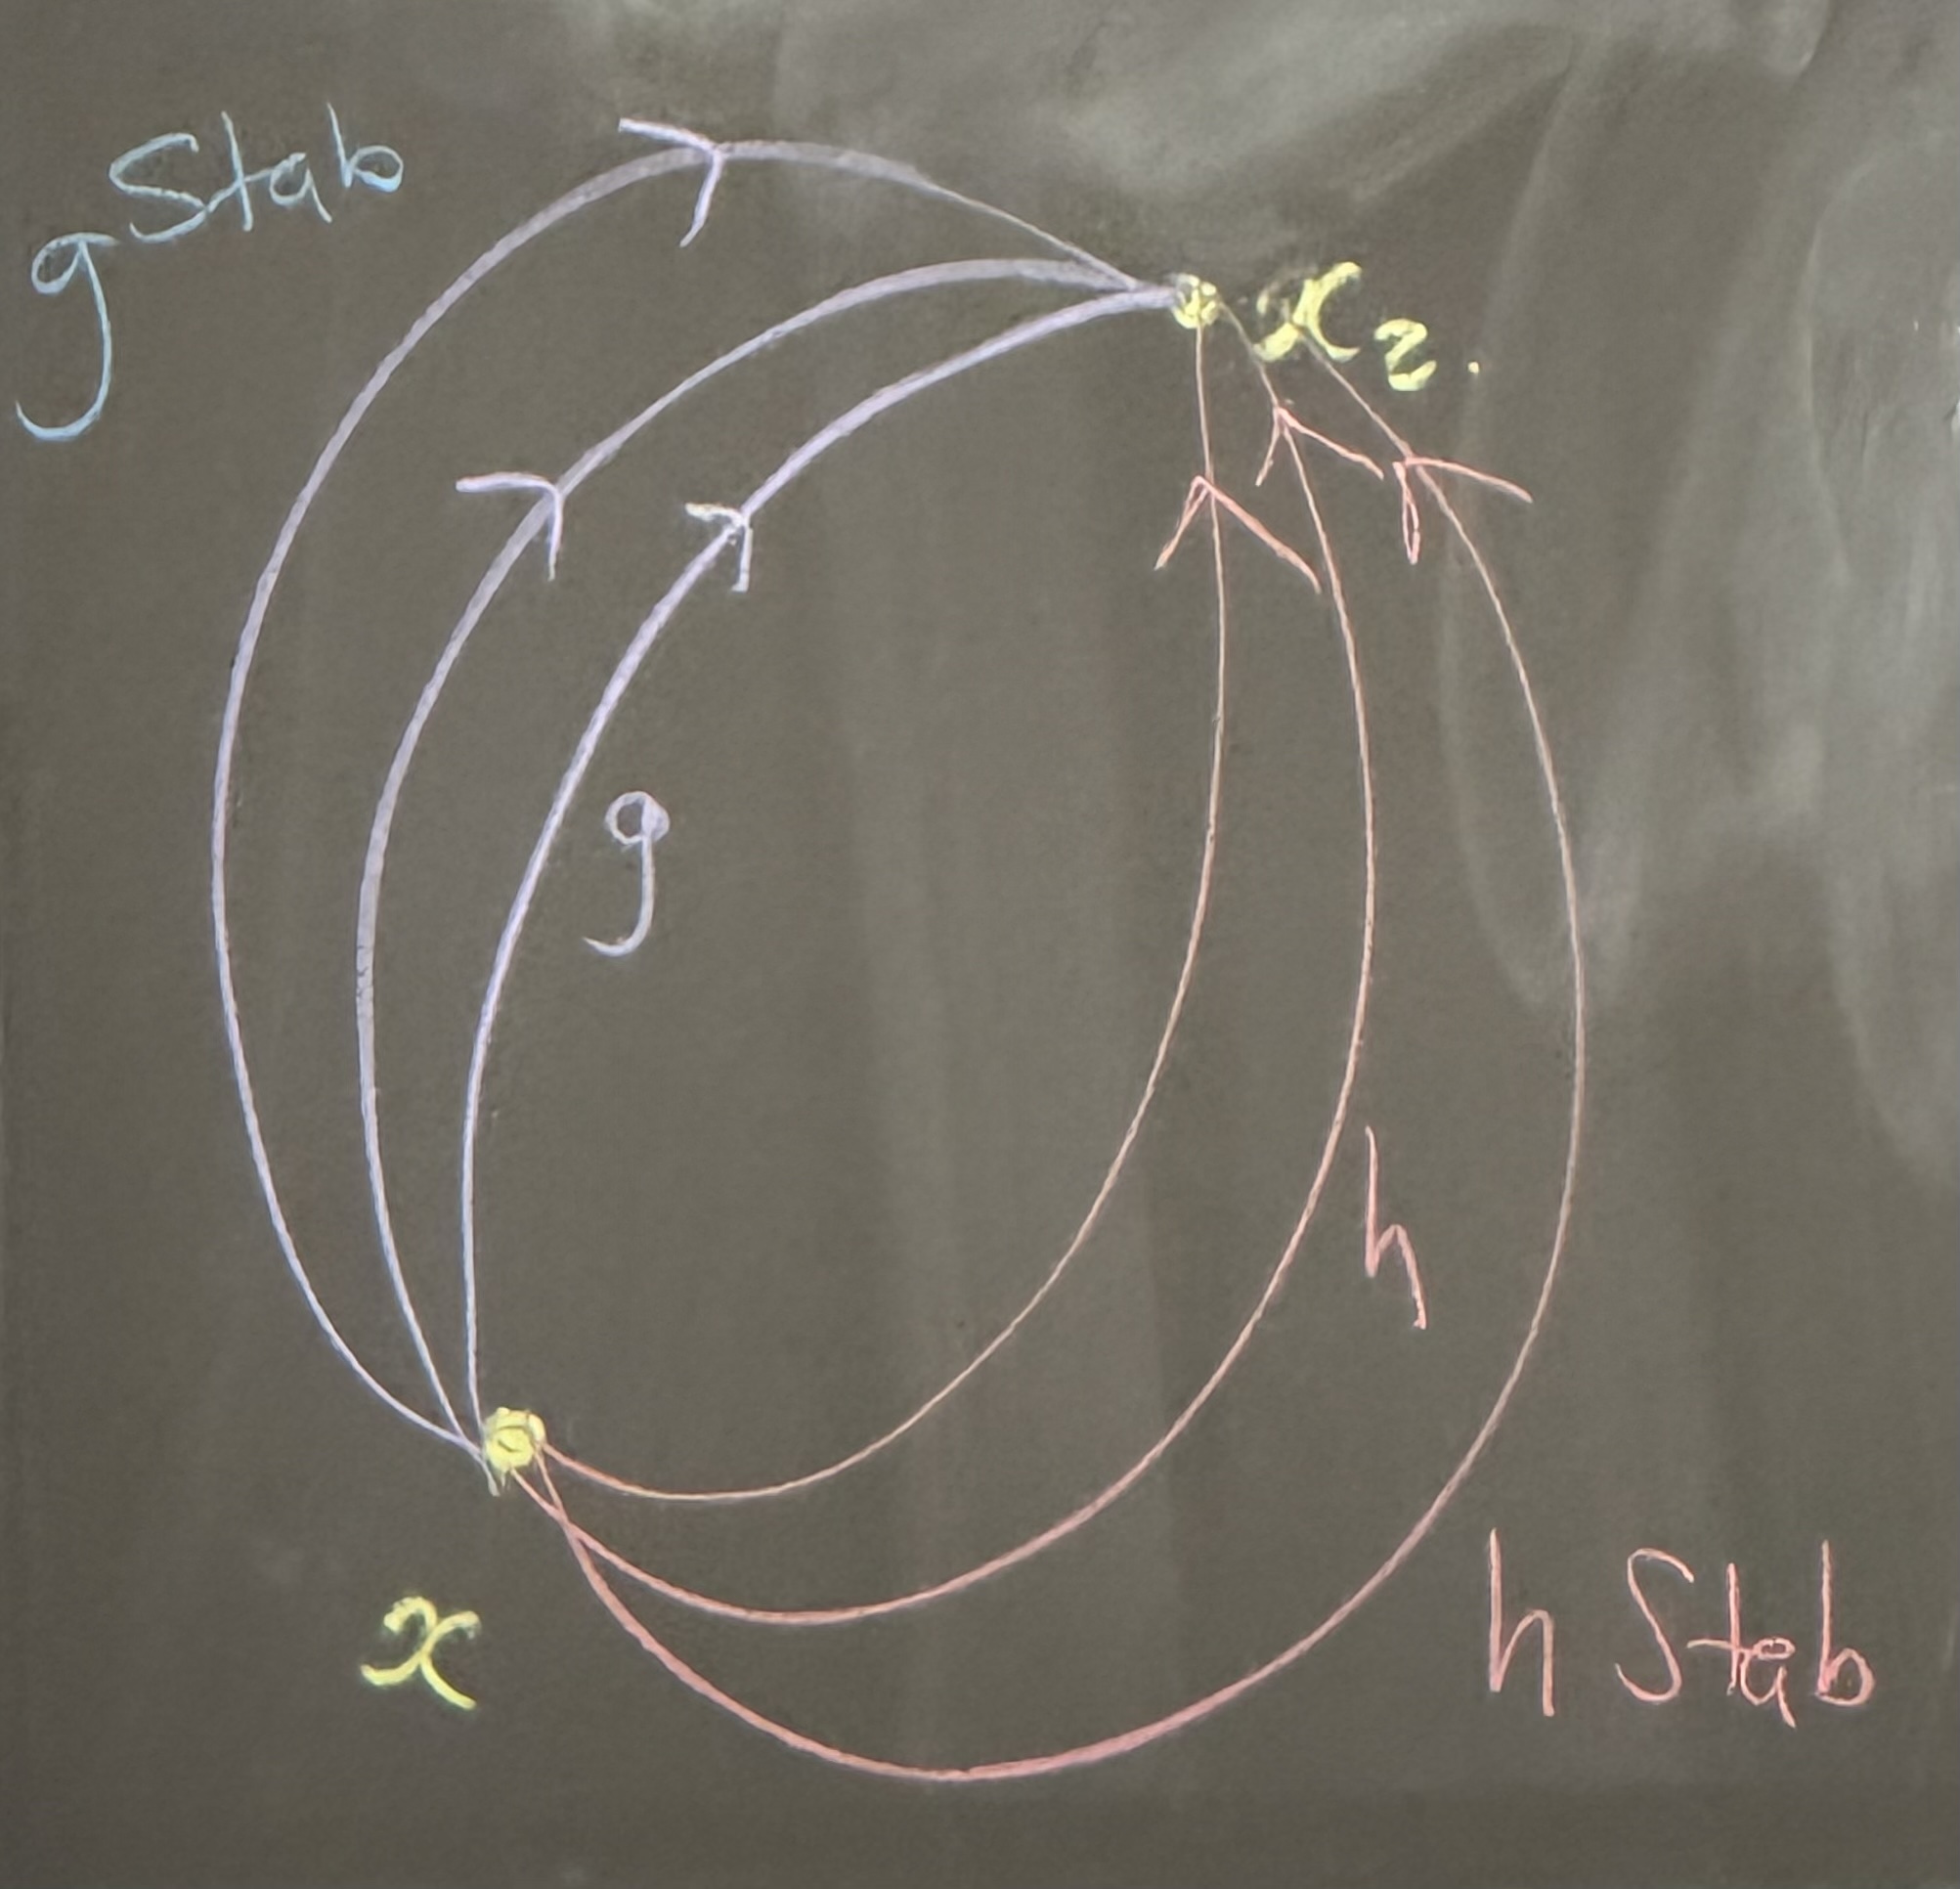 g Stab
x₂.
g
h
x
h Stab